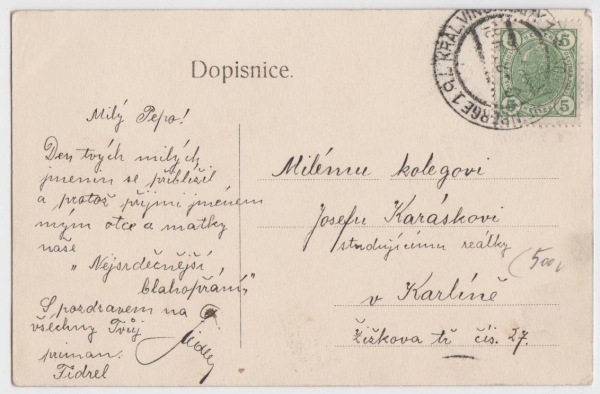 Dopisnice.
KRÁL. VINOHRADY 1
5 5
5 5
Milý Pepo!
Den tvých milých
jmenin se přiblížil
a protož přijmi jménem
mým otce a matky
naše
„Nejsrdečnější
blahopřání„
S pozdravem na
všechny Tvůj
priman:
Fidrel
Milému kolegovi
Josefu Karáskovi
studujícímu reálky
v Karlíně
Žižkova tř čís. 27.